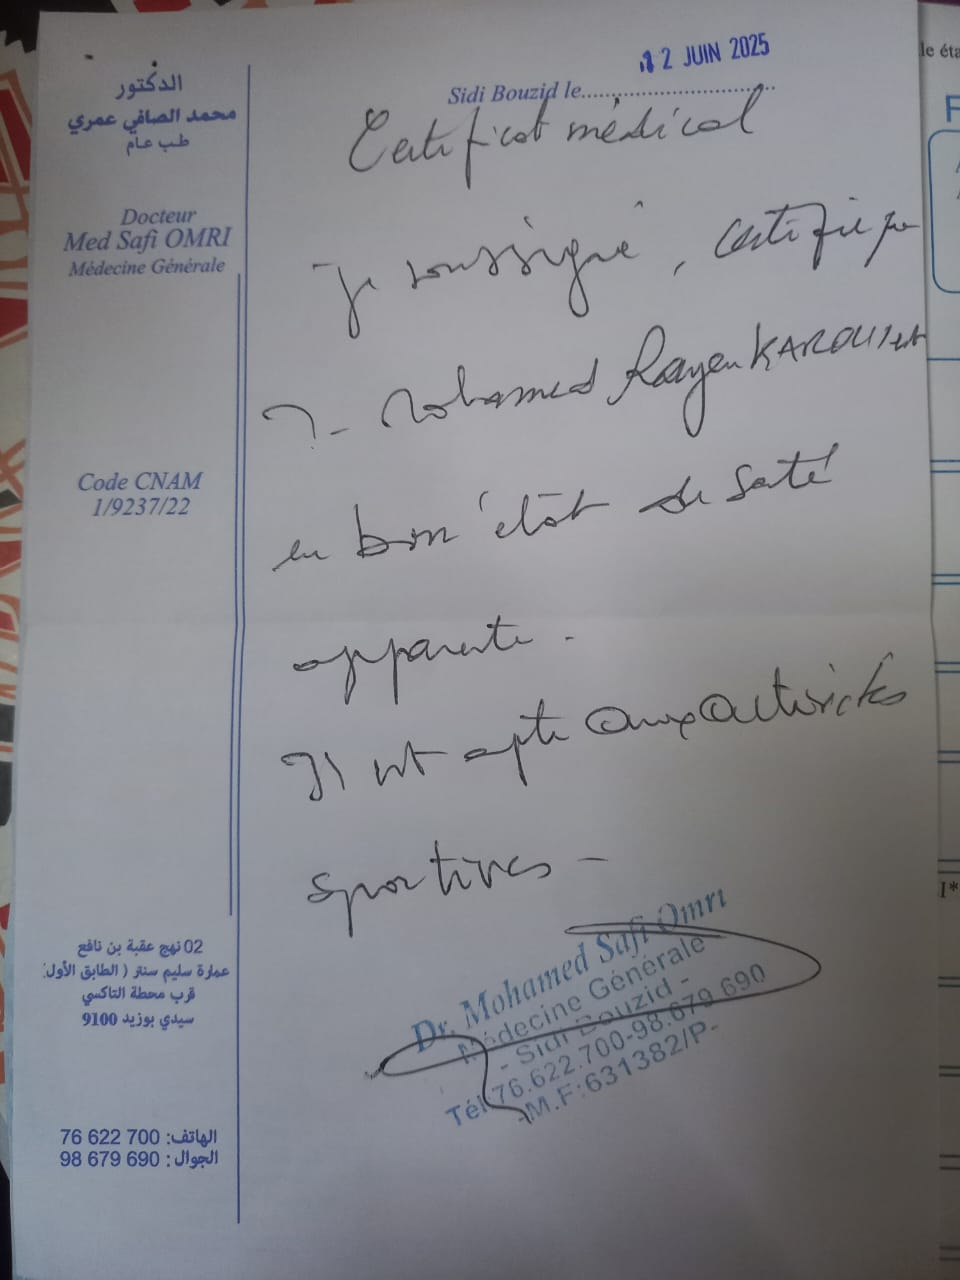 الدكتور
محمد الصافي عمري
طب عام
Docteur
Med Safi OMRI
Médecine Générale
Code CNAM
1/9237/22
02 نهج عقبة بن نافع
عمارة سليم سنتر ( الطابق الأول)
قرب محطة التاكسي
سيدي بوزيد 9100
الهاتف: 76 622 700
الجوال : 98 679 690
12 JUIN 2025
Sidi Bouzid le
Certificat médical
Je soussigné, certifie que
Mohamed Rayen KAROUI est
en bon état de santé
apparente.
Il est apte aux activités
sportives -
Dr. Mohamed Safi Omri
Médecine Générale
- Sidi Bouzid -
Tél: 76.622.700-98.679 690
-M.F:631382/P-
le éta
I*